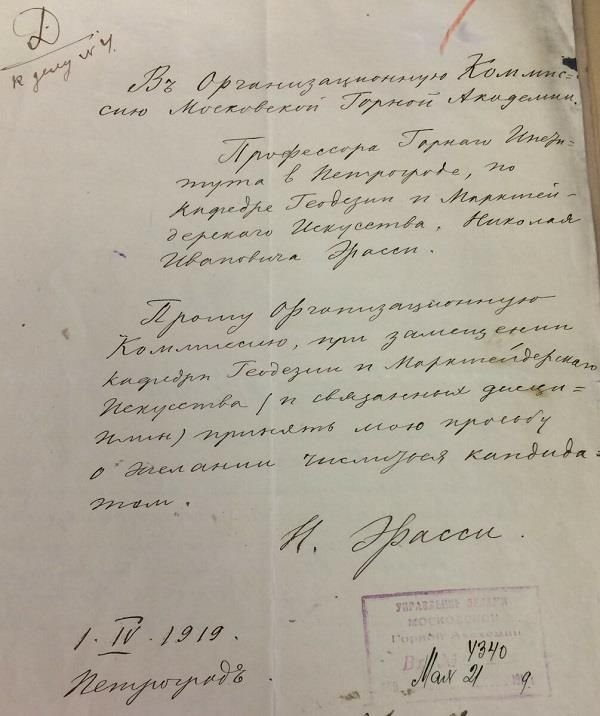 Д.
К делу № 4.
Въ Организационную Коммис-
сию Московской Горной Академии.
Профессора Горнаго Инсти-
тута в Петрограде, по
кафедре Геодезии и Маркшей-
дерского Искусства, Николая
Ивановича Эрасси.
Прошу Организационную
Коммиссию, при замещении
кафедры Геодезии и Маркшейдерскаго
Искусства (и связанных дисци-
плин) принять мою просьбу
о желании числиться кандида-
том.
Н. Эрасси.
1. IV. 1919.
Петроградъ
УПРАВЛЕНИЕ ДЕЛАМИ
МОСКОВСКОЙ
Горной Академии
4340
Мая 21 9.